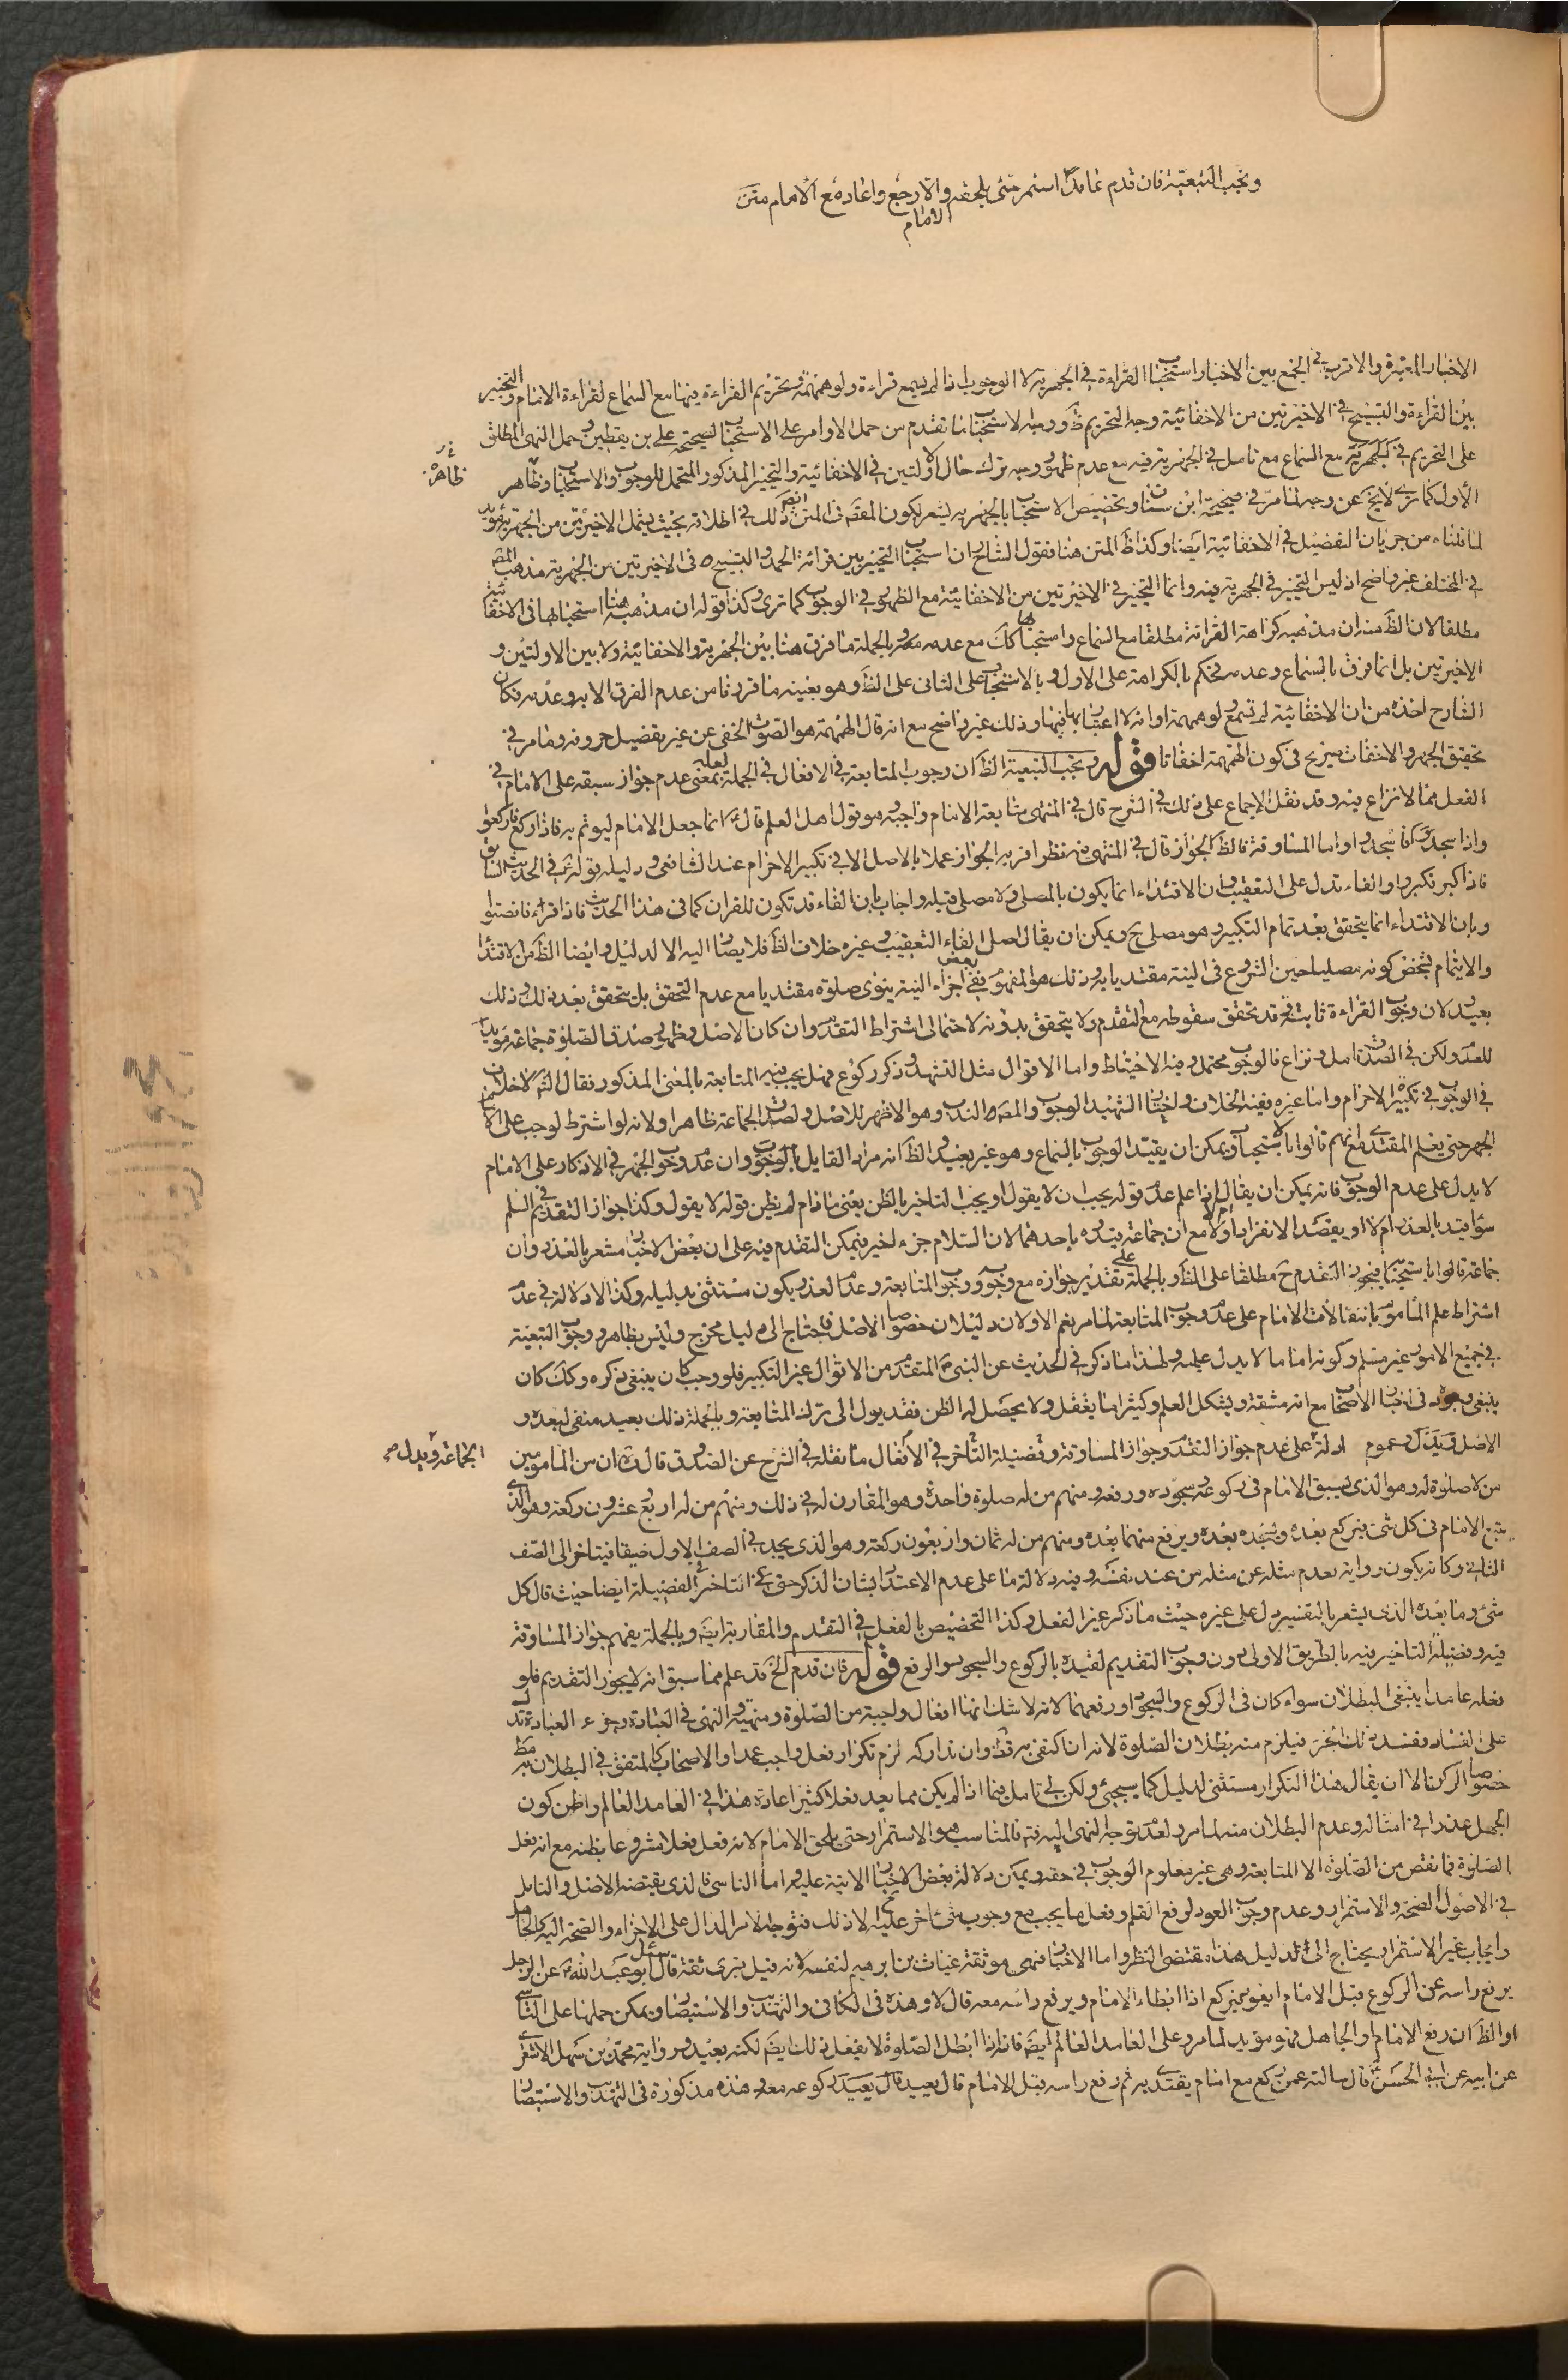 وتجب التبعية فان قدم عامدا استمر حتى يلحقه والا رجع واعاد مع الامام متن
الامام
الاخبار المعتبرة والاقرب في الجمع بين الاخبار استحباب القراءة في الجهرية لا الوجوب اذا لم يسمع قراءة ولو همهمة وتحريم القراءة فيها مع السماع لقراءة الامام والتخيير
بين القراءة والتسبيح في الاخيرتين من الاخفائية وجه التحريم ظ ووجه الاستحباب ما تقدم من حمل الاوامر على الاستحباب لصحيحة علي بن يقطين وحمل النهى المطلق
على التحريم في الجهرية مع السماع مع تامل في الجهرية فيه مع عدم ظهور وجه ترك حال الاولتين في الاخفائية والتخيير المذكور المتحمل للوجوب والاستحباب وظاهر
ظاهر
الأول كما ترى لا يخ عن وجه لما مر في صحيحة ابن سنان وتخصيص الاستحباب بالجهرية يشعر بكون المقصد في المتن ايضا ذلك في اطلاقه بحيث يشمل الاخيرتين من الجهرية
لما قلناه من جريان التفصيل في الاخفائية ايضا وكذا ظ المتن هنا فقول الشارح ان استحباب التخيير بين قرائة الحمد والتسبيح في الاخيرتين من الجهرية مذهب المص
في المختلف غير واضح اذ ليس التخيير في الجهرية فيه وانما التخيير في الاخيرتين من الاخفائية مع الظهور في الوجوب كما ترى وكذا قوله ان مذهبه هنا استحبابها في الاخفائية
مطلقا لان الظ منه ان مذهبه كراهة القرائة مطلقا مع السماع واستحبابها كك مع عدمه وبالجملة ما فرق هنا بين الجهرية والاخفائية ولا بين الاولتين و
الاخيرتين بل انما فرق بالسماع وعدمه فحكم بالكراهة على الاول وبالاستحباب على الثاني على الظ وهو بعينه ما قررنا من عدم الفرق الا به وعدمه فكان
الشارح اخذه من ان الاخفائية لم تسمع لو همهمة او انه لا اعتبار بها فيها وذلك غير واضح مع انه قال الهمهمة هو الصوت الخفى من غير تفصيل حروفه وما مر في
تحقيق الجهر والاخفات صريح في كون الهمهمة اخفاتا قوله وتجب التبعية الظ ان وجوب المتابعة في الافعال في الجملة لعله بمعنى عدم جواز سبقه على الامام في
الفعل مما لا نزاع فيه وقد نقل الاجماع على ذلك في الشرح قال في المنتهى متابعة الامام واجبة وهو قول اهل العلم قال انما جعل الامام ليؤتم به فاذا ركع فاركعوا
واذا سجد فاسجدوا واما المساوقة فالظ الجواز قال في المنتهى فيه نظر اقربه الجواز عملا بالاصل الا في تكبير الاحرام عند الشافعى ودليله قوله في الحديث السابق
فاذا كبر فكبروا والفاء تدل على التعقيب وان الاقتداء انما يكون بالمصلى ولا مصلى قبله واجاب بان الفاء قد تكون للقران كما في هذا الحديث فاذا قراء فانصتوا
وبان الاقتداء انما يتحقق بعد تمام التكبير وهو مصلى ح ويمكن ان يقال اصل الفاء التعقيب وغيره خلاف الظ فلا يصار اليه الا لدليل وايضا الظ من الاقتداء
والايتمام شخص كونه مصليا حين الشروع في النية مقتديا به وذلك هو المفهوم ففى بعض اجزاء النية ينوى صلوة مقتديا مع عدم التحقق بل يتحقق بعد ذلك وذلك
بعيد لان وجوب القراءة ثابت وقد تحقق سقوطه مع التقدم ولا يتحقق بدونه لاحتمال اشتراط التقدم وان كان الاصل وظهور صدق الصلوة جماعة مؤيدا
للعدم ولكن في الصدق تامل ونزاع فالوجوب محتمل وفيه الاحتياط واما الاقوال مثل التشهد وذكر ركوع فهل يجب فيه المتابعة بالمعنى المذكور فقال الش لا خلاف
في الوجوب في تكبيرة الاحرام واما غيره ففيه الخلاف واختيار الشهيد الوجوب والمص الندب وهو الاظهر للاصل ولصدق الجماعة ظاهرا ولانه لو اشترط لوجب على الامام
الجهر حتى يعلم المقتدى مع انهم قالوا بالاستحباب ويمكن ان يقيد الوجوب بالسماع وهو غير بعيد والظ انه مراد القايل بالوجوب وان عدم وجوب الجهر في الاذكار على الامام
لا يدل على عدم الوجوب فانه يمكن ان يقال اذا علم عدم قوله يجب ان لا يقول او يجب التاخير بالظن يعنى ما دام لم يظن قوله لا يقول وكذا جواز التقديم في السلم
سواء قيد بالعذر ام لا او بقصد الانفراد او لا مع ان جماعة قيدوه باحدهما لان السلام جزء اخير فيمكن التقدم فيه على ان بعض الاخبار مشعر بالعذر وان
جماعة قالوا باستحبابه فيجوز التقدم ح مطلقا على الظ وبالجملة على تقدير جوازه مع وجوبه ووجوب المتابعة وعدم العذر يكون مستثنى بدليله وكذا لا دلالة في عدم
اشتراط علم الماموم بانتقالات الامام على عدم وجوب المتابعة لما مر نعم الاولان دليلان خصوصا الاصل فاحتاج الى دليل مخرج وليس بظاهر ووجوب التبعية
في جميع الامور غير مسلم وكونه اماما لا يدل عليه ولهذا ما ذكر في الحديث عن النبى المتقدم من الاقوال غير التكبير فلو وجب كان ينبغى ذكره وكك كان
ينبغى وجوده في اخبار الاصحاب مع انه مشقة ويشكل العلم وكثيرا ما يغفل ولا يحصل له الظن فقد يول الى ترك المتابعة وبالجملة ذلك بعيد منفى لبعده و
الاصل وعموم ادلة على عدم جواز التقدم وجواز المساوقة وفضيلة التأخر في الأفعال ما نقله في الشرح عن الصدوق قال ان من المامومين
الجماعة ويدل
من لا صلوة له وهو الذى يسبق الامام في ركوعه وسجوده ورفعه ومنهم من له صلوة واحدة وهو المقارن له في ذلك ومنهم من له اربع وعشرون ركعة وهو الذى
يتبع الامام في كل شئ فيركع بعده ويسجد بعده ويرفع منهما بعده ومنهم من له ثمان واربعون ركعة وهو الذى يجد في الصف الاول ضيقا فيتاخر الى الصف
الثانى وكانه يكون رواية بعدم مثله عن مثله من عند نفسه وفيه دلالة ما على عدم الاعتداد بشان الذكر حتى في التاخير في الفضيلة ايضا حيث قال كل
شئ وما بعده الذى يشعر بالتفسير يدل على غيره حيث ما ذكر غير الفعل وكذا التخصيص بالفعل في التقدم والمقاربة ايضا وبالجملة يفهم جواز المساوقة
فيه وفضيلة التاخير فيه بالطريق الاولى دون وجوب التقديم لقيده بالركوع والسجود والرفع قوله فان قدم الخ قد علم مما سبق انه لا يجوز التقديم فلو
فعله عامدا ينبغى البطلان سواء كان في الركوع والسجود او رفعهما لانه لا شك انها افعال واجبة من الصلوة ومنهية والنهى في العبادة وجزء العبادة تدل
على الفساد فيفسد ذلك الجزء فيلزم منه بطلان الصلوة لانه ان اكتفى به وان تداركه لزم تكرار فعل واجب عمدا والاصحاب كالمتفق في البطلان به
خصوصا الركن الا ان يقال هذا التكرار مستثنى لدليل كما سيجئ ولكن لي تامل فيما اذا لم يكن مما يعد فعلا كثيرا اعادة هذا في العامد العالم واظن كون
الجهل عذرا في امثاله وعدم البطلان منه لما مر ولعدم توجه النهى اليه فالمناسب هو الاستمرار حتى يلحق الامام لانه فعل فعلا مشروعا بظنه مع انه فعل
الصلوة فما نقص من الصلوة الا المتابعة وهى غير معلوم الوجوب في حقه ويمكن دلالة بعض الاخبار الاتية عليه واما الناسى فالذى يقتضيه الاصل والتامل
في الاصول الصحة والاستمرار وعدم وجوب العود لرفع القلم وفعل ما يجب مع وجوب شئ اخر عليه لا ذلك فتوجه الامر الدال على الاجزاء والصحة اليه كالجاهل
وايجاب غير الاستمرار يحتاج الى الدليل هذا مقتضى النظر واما الاخبار فهى موثقة غياث بن ابرهيم لنفسه لانه قيل بترى ثقة قال سئل ابو عبد الله عن الرجل
يرفع راسه عن الركوع قبل الامام ايعود يركع اذا ابطاء الامام ويرفع راسه معه قال لا وهذه في الكافى والتهذيب والاستبصار ويمكن حملها على الناسى
او الظان رفع الامام او الجاهل فهو مؤيد لما مر وعلى العامد العالم ايضا فانه اذا ابطل الصلوة لا يفعل ذلك ايضا لكنه بعيد ورواية محمد بن سهل الاشعرى
عن ابيه عن ابى الحسن قال سالته عمن ركع مع امام يقتدى به ثم رفع راسه قبل الامام قال يعيد ركوعه معه وهذه مذكورة في التهذيب والاستبصار